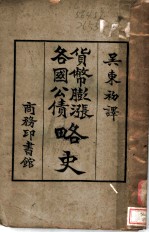 吳東初譯
貨幣膨漲
各國公債
略史
商務印書館